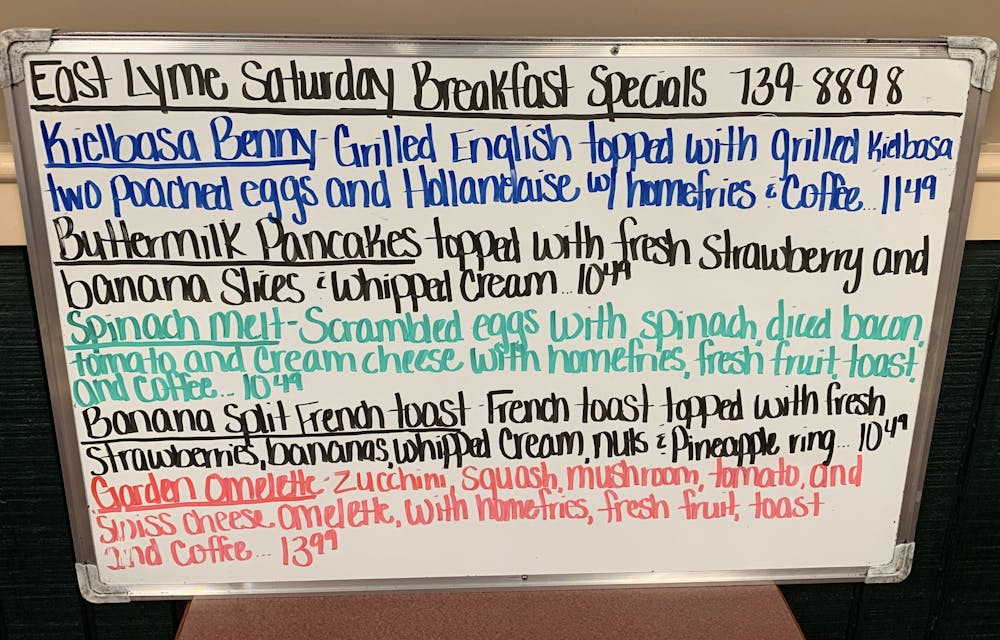 East Lyme Saturday Breakfast Specials 739-8898
Kielbasa Benny - Grilled English topped with grilled Kielbasa
two poached eggs and Hollandaise w/ homefries & Coffee... 11 49
Buttermilk Pancakes topped with fresh strawberry and
banana slices & whipped cream... 10 49
Spinach Melt - Scrambled eggs with spinach, diced bacon,
tomato, and cream cheese with homefries, fresh fruit, toast
and coffee... 10 49
Banana Split French toast - French toast topped with fresh
strawberries, bananas, whipped cream, nuts & Pineapple ring... 10 49
Garden Omelette - Zucchini, squash, mushroom, tomato, and
swiss cheese omelette, with homefries, fresh fruit, toast
and coffee... 13 99